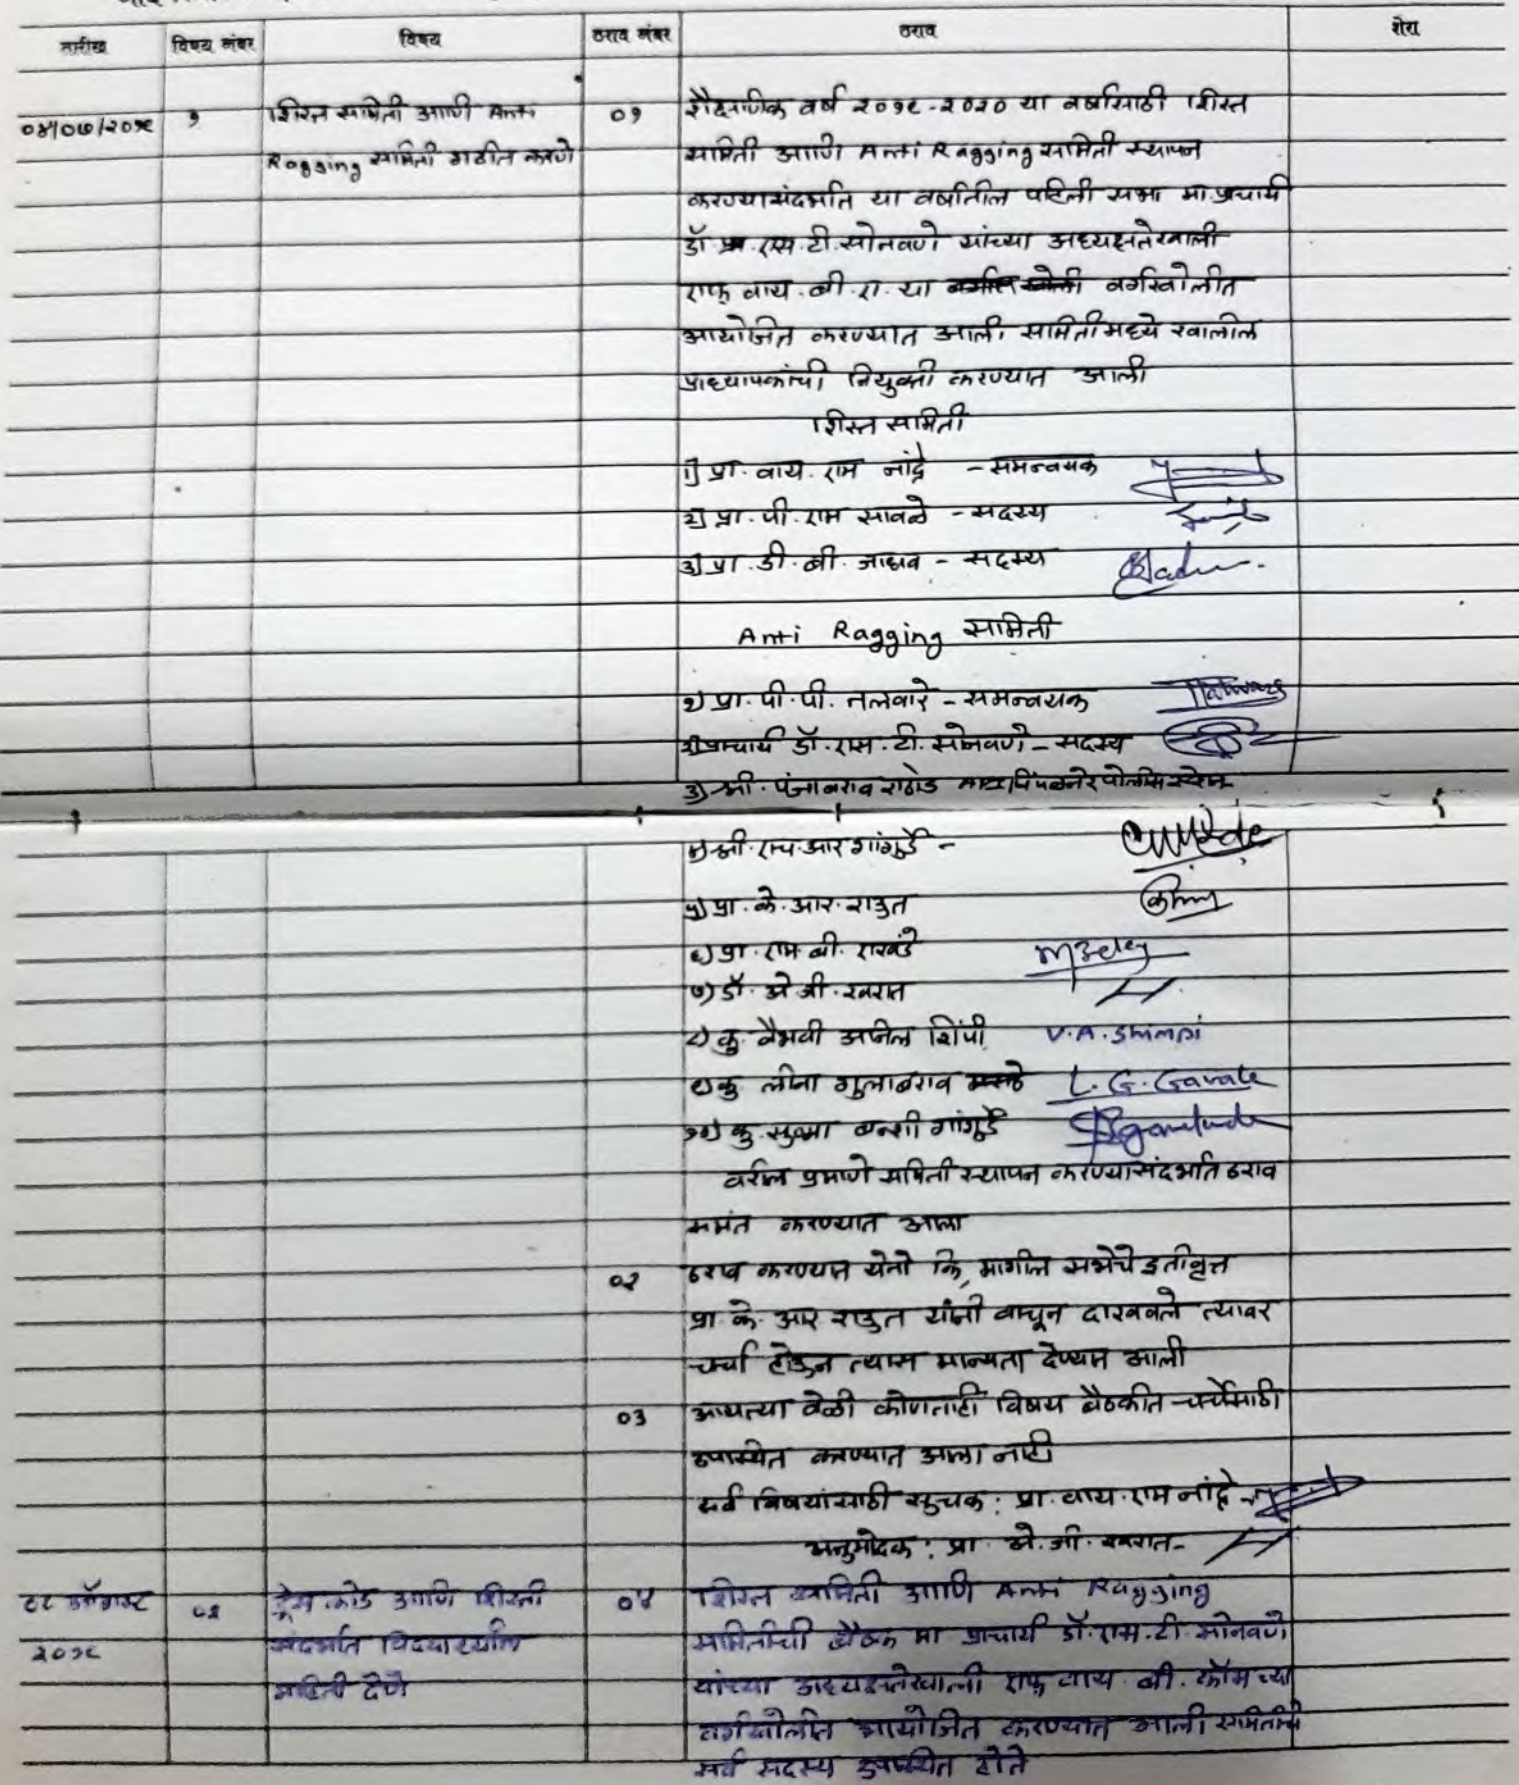 तारीख विषय नंबर विषय ठराव नंबर ठराव शेरा
०४/०७/२०१९ १ शिस्त समिती आणि Anti ०१ शैक्षणिक वर्ष २०१९-२०२० या वर्षासाठी शिस्त
Ragging समिती गठीत करणे समिती आणि Anti Ragging समिती स्थापन
करण्यासंदर्भात या वर्षातील पहिली सभा मा.प्राचार्य
डॉ. एस.टी.सोनवणे यांच्या अध्यक्षतेखाली
एफ वाय.बी.ए. या वर्गखोलीत
आयोजित करण्यात आली समितीमध्ये खालील
प्राध्यापकांची नियुक्ती करण्यात आली
शिस्त समिती
1) प्रा. वाय. एम नांद्रे - समन्वयक
२) प्रा. पी. एम सावळे - सदस्य
३) प्रा. डी. बी. जाधव - सदस्य
Anti Ragging समिती
१) प्रा. पी. पी. तलवारे - समन्वयक
२) प्राचार्य डॉ. एस. टी. सोनवणे - सदस्य
३) श्री. पंजाबराव राठोड पिंपळनेर पोलीस स्टेशन
४) श्री. एच. आर गांगुर्डे -
५) प्रा. के. आर. राऊत
६) प्रा. एम. बी. एखंडे
७) डॉ. ए. जी. खरात
८) कु. वैभवी अनिल शिंपी V.A. Shimpi
९) कु लीना गुलाबराव L. G. Gavale
१०) कु. सुषमा बन्शी गांगुर्डे
वरील प्रमाणे समिती स्थापन करण्यासंदर्भात ठराव
संमत करण्यात आला
०२ ठराव करण्यात येतो कि, मागील सभेचे इतीवृत्त
प्रा. के. आर राऊत यांनी वाचून दाखवले त्यावर
चर्चा होऊन त्यास मान्यता देण्यात आली
०३ आयत्या वेळी कोणताही विषय बैठकीत चर्चेसाठी
उपस्थित करण्यात आला नाही
सर्व विषयांसाठी सुचक : प्रा. वाय. एम नांद्रे -
अनुमोदक : प्रा. ए. जी. खरात -
ऑगस्ट ०२ ड्रेस कोड आणि शिस्ती ०४ शिस्त समिती आणि Anti Ragging
२०१९ संदर्भात विद्यार्थ्यांना समितीची बैठक मा प्राचार्य डॉ. एस. टी. सोनवणे
माहिती देणे यांच्या अध्यक्षतेखाली एफ वाय. बी. कॉम च्या
वर्गखोलीत आयोजित करण्यात आली समितीचे
सर्व सदस्य उपस्थित होते